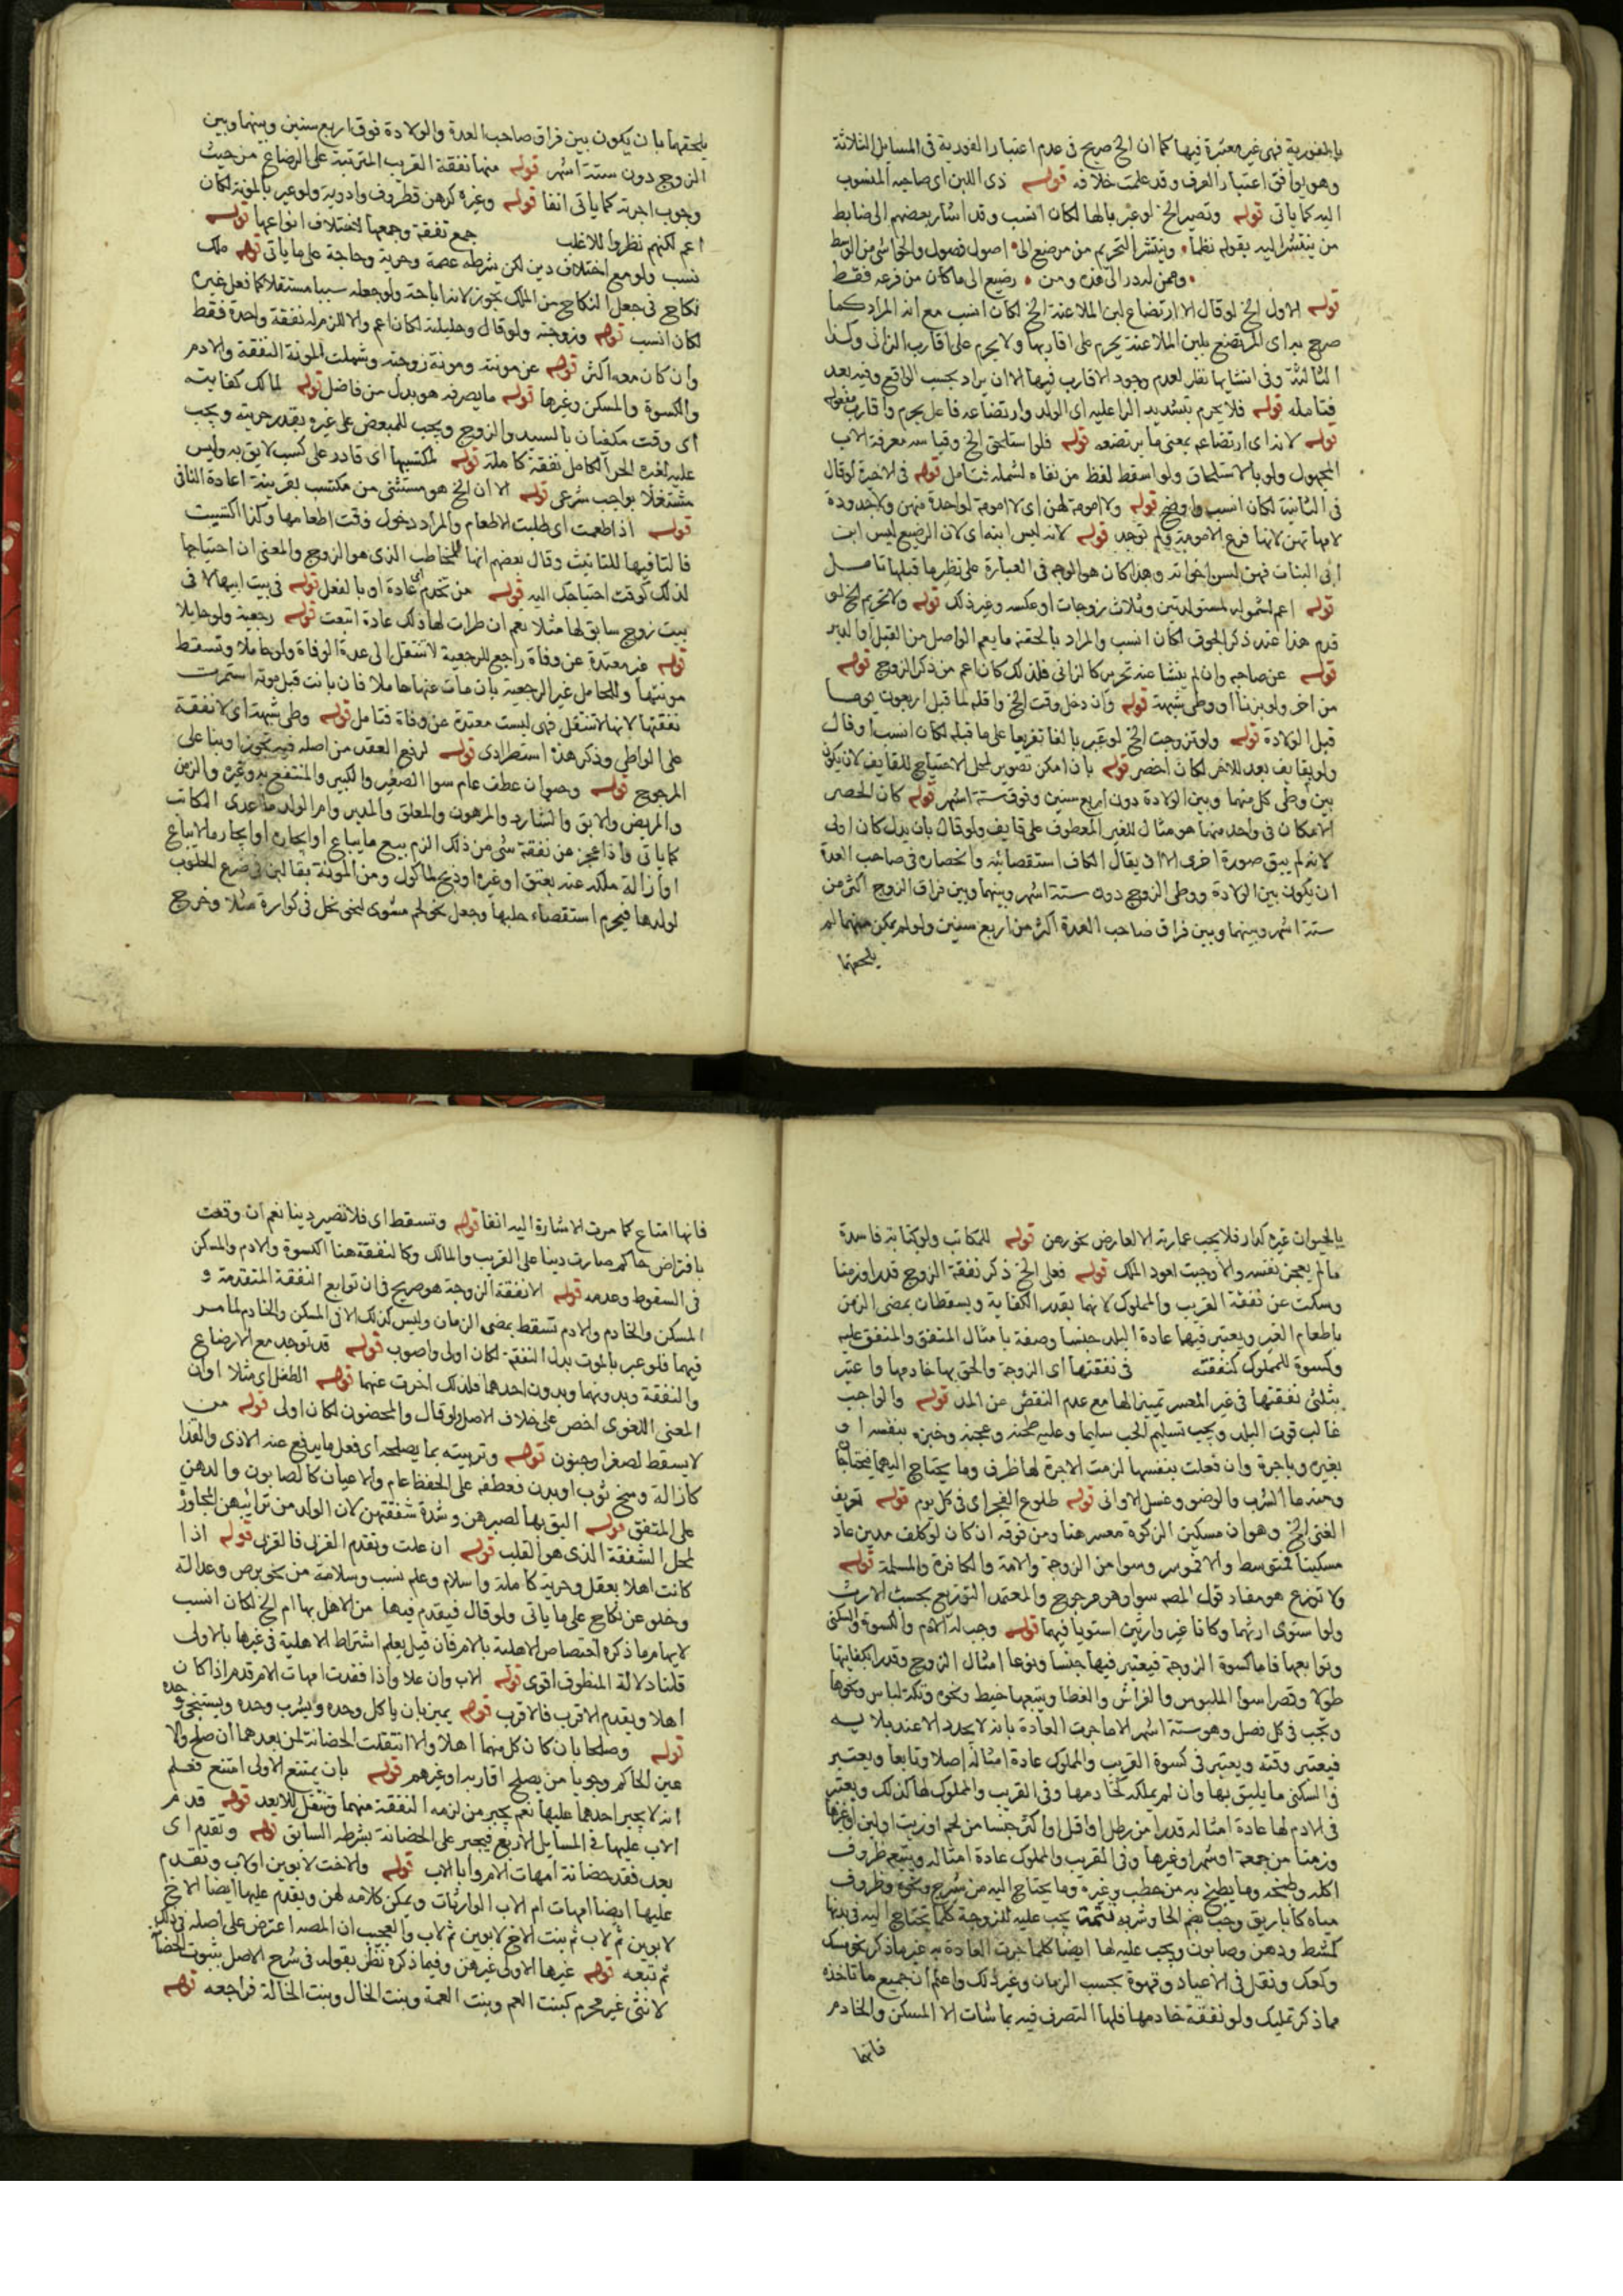 بالفورية فهى غير معتبرة فيها كما ان الخ صريح فى عدم اعتبار الفورية فى المسايل الثلاثة
وهو يوافق اعتبار العرف وقد علمت خلافه قوله ذى اللبن اى صاحبه المنسوب
اليه كما ياتى قوله وتصير الخ لو عبر بالها لكان انسب وقد اشار بعضهم الى ضابط
من ينتشر اليه بقوله نظما وينتشر التحريم من مرضع الى اصول فصول والحواشى من الوسط
وممن له در الى هذه ومن رضيع الى ما كان من فرعه فقط
قوله الاول الخ لو قال الا ارتضاع لبن الملاعنة الخ لكان انسب مع انه المراد كما
صرح به اى المرتضع بلبن الملاعنة يحرم على اقاربها ولا يحرم على اقارب الزانى وكذا
الثالثة وفى انتشابها نظر لعدم وجود الاقارب فيها الا ان يراد بحسب الواقع وفيه بعد
فتامله قوله فلا يحرم بتشديد الرا عليه اى الولد وارتضاعه فاعل يحرم واقارب مفعوله
قوله لانه اى ارتضاعه بمعنى ما يرتضعه قوله فلو استلحق الخ وقياسه معرفة الاب
المجهول ولو بالاستلحاق ولو اسقط لفظ من نفاه لشمله فتامل قوله فى الاخيرة لو قال
فى الثانية لكان انسب واوضح قوله ولا امومة لهن اى لا امومة لواحدة منهن ولا جدودة
لامهاتهن لانها فرع الامومة ولم توجد قوله لانه ليس ابنه اى لان الرضيع ليس ابن
ابى البنات فهن لسن اخواته وهذا كان هو الوجه فى العبارة على نظير ما قبلها تامل
قوله اعم لشموله لمستولدتين وثلاث زوجات او عكسه وغير ذلك قوله ولا تحريم الخ لو
قدم هذا عند ذكر الجوف لكان انسب والمراد بالحقنة ما يعم الواصل من القبل او الدبر
قوله عن صاحبه وان لم ينشا عنه تحريم كالزانى فلذلك كان اعم من ذكر الزوج قوله
من اخر ولو بزنا او وطى شبهة قوله وان دخل وقت الخ واقله لما قبل اربعون يوما
قبل الولادة قوله ولو تزوجت الخ لو عبر بالفا تفريعا على ما قبله لكان انسب وقال
ولو بقايف بعد للاخر لكان اخصر قوله بان امكن تصوير لمحل الاحتياج للقايف لان يكون
بين وطى كل منهما وبين الولادة دون اربع سنين وفوق ستة اشهر قوله كان انحصر
الامكان فى واحد منهما هو مثال للغير المعطوف على قايف ولو قال بان بدل كان اولى
لانه لم يبق صورة اخرى الا ان يقال الكاف استقصائيه وانحصاره فى صاحب العدة
ان يكون بين الولادة ووطى الزوج دون ستة اشهر وبينهما وبين فراق الزوج اكثر من
ستة اشهر وبينهما وبين فراق صاحب العدة اكثر من اربع سنين ولو لم يمكن منهما لم
يلحقهما
يلحقهما بان يكون بين فراق صاحب العدة والولادة فوق اربع سنين وبينهما وبين
الزوج دون ستة اشهر قوله منها نفقة القريب المترتبة على الرضاع من حيث
وجوب اجرته كما ياتى انفا قوله وغيره كرهن قطروف وادوية ولو عبر بالمونة لكان
اعم لكنهم نظروا للاغلب جمع نفقة وجمعها لاختلاف انواعها قوله
نسب ولو مع اختلاف دين لكن بشرطه عصمة وحرية وحاجة على ما ياتى قوله ملك
نكاح فى جعل النكاح من الملك تجوز لانه اباحة ولو جعله سببا مستقلا كما فعل غيره
لكان انسب قوله وزوجته ولو قال وحليلته لكان اعم والا للزم له نفقة واحدة فقط
وان كان معه اكثر قوله عن مونته ومونة زوجته وشملت المونة النفقة والادم
والكسوة والمسكن وغيرها قوله ما يصرفه هو بدل من فاضل قوله لمالك كفايته
اى وقت مكفيان بالسيد والزوج ويجب للمبعض على غيره بقدر حريته ويجب
عليه لغيره الحر الكامل نفقة كاملة قوله لمكتسبها اى قادر على كسب لايق به وليس
مشتغلا بواجب شرعى قوله الا ان الخ هو مستثنى من مكتسب بقرينة اعادة الثانى
قوله اذا طعمت اى طلبت الاطعام والمراد دخول وقت اطعامها وكذا اكتسيت
فالتا فيها للتانيث وقال بعضهم انها للمخاطب الذى هو الزوج والمعنى ان احتياجها
لذلك كوقت احتياجك اليه قوله من تخدم اى عادة او بالفعل قوله فى بيت ابيها لا فى
بيت زوج سابق لها مثلا نعم ان طرات لها ذلك عادة اتبعت قوله رجعية ولو حايلا
قوله غير معتدة عن وفاة راجع للرجعية لانتقال الى عدة الوفاة ولو حاملا وتسقط
مونتها وللحامل غير الرجعية بان مات عنها حاملا فان بانت قبل موته استمرت
نفقتها لانها لا تنتقل فهى ليست معتدة عن وفاة فتامل قوله وطى شبهة اى لا نفقة
على الواطى وذكر هذه استطرادى قوله لرفع العقد من اصله فيه تجوز او بنا على
المرجوح قوله وحيوان عطف عام سوا الصغير والكبير والمنتفع به وغيره والزمن
والمريض والابق والشارد والمرهون والمعلق والمدبر وام الولد ما عدى المكاتب
كما ياتى واذا عجز عن نفقة شى من ذلك الزم ببيع ما يباع او ايجاره او ايجار ما لا يباع
او ازالة ملكه عنه بعتق او غيره او ذبح لماكول ومن المونة بقا لبن فى ضرع الحلوب
لولدها فيحرم استقصاء حلبها وجعل نحو لحم مشوى لنحو نحل فى كوارة مثلا وخرج
بالحيوان غيره كدار فلا يجب عمارته الا لعارض نحو رهن قوله للمكاتب ولو كتابة فاسدة
ما لم يعجز نفسه والا وجبت لعود الملك قوله فعلى الخ ذكر نفقة الزوج قدرا وزمنا
وسكت عن نفقة القريب والمملوك لانها بقدر الكفاية ويسقطان بمضى الزمن
باطعام الغير ويعتبر فيهما عادة البلد جنسا وصفة بامثال المنفق والمنفق عليه
وكسوة للمملوك كنفقته فى نفقتها اى الزوجة والحق بها خادمها واعتبر
بثلثى نفقتها فى غير المعسر تمييزا لها مع عدم النقص عن المد قوله والواجب
غالب قوت البلد ويجب تسليم الحب سليما وعليه طحنه وعجنه وخبزه بنفسه او
بغيره وباجرة وان فعلت بنفسها لزمت الاجرة لها ظرف وما يحتاج اليه فيحتاج
ومنه ما الشرب والوضو وغسل الاوانى قوله طلوع الفجر اى فى كل يوم قوله تعريف
الغنى الخ وهو ان مسكين الزكوة معسر هنا ومن فوقه ان كان لو كلف مدين عاد
مسكينا فمتوسط والا فموسر وسوا من الزوجة والامة والكافرة والمسلمة قوله
ولا توزع هو مفاد قول المصـ سوا وهو مرجوح والمعتمد التوزيع بحسب الارث
ولو استوى ارثهما وكانا غير وارثين استويا فيهما قوله وجب له الادم والكسوة والسكنى
وتوابعها فاما كسوة الزوجة فيعتبر فيها جنسا ونوعا امثال الزوج وقدرا كفايتها
طولا وقصرا سوا الملبوس والفراش والغطا ويتبعها خيط ونحوه وتكة لباس ونحوها
وتجب فى كل فصل وهو ستة اشهر الا ما جرت العادة بانه لا يجدد الا عند بلايه
فيعتبر وقته ويعتبر فى كسوة القريب والمملوك عادة امثاله اصلا وتابعا ويعتبر
فى السكنى ما يليق بها وان لم يملكه كخادمها وفى القريب والمملوك لها كذلك ويعتبر
فى الادم لها عادة امثاله قدرا من رطل او اقل او اكثر جنسا من لحم او زيت او لبن او غيرها
وزمنا من جمعة او شهر او غيرها وفى القريب والمملوك عادة امثاله ويتبعه ظروف
اكله وطبخه وما يطبخ به من حطب وغيره وما يحتاج اليه من شيرج ونحوه وظروف
مياه كاباريق وجب بضم الحا وشربه تتمة يجب عليه للزوجة كلما تحتاج اليه فى بدنها
كمشط ودهن وصابون ويجب عليه لها ايضا كلما جرت العادة به غير ما ذكر نحو سمك
وكعك ونقل فى الاعياد وقهوة بحسب الزمان وغير ذلك واعلم ان جميع ما تاخذه
مما ذكر تمليك ولو نفقة خادمها فلها التصرف فيه بما شات الا المسكن والخادم
فانهما
فانها امتاع كما مرت الاشارة اليه انفا قوله وتسقط اى فلا تصير دينا نعم ان وقعت
باقتراض حاكم صارت دينا على القريب والمالك وكالنفقة هنا الكسوة والادم والمسكن
فى السقوط وعدمه قوله الا نفقة الزوجة هو صريح فى ان توابع النفقة المتقدمة و
المسكن والخادم والادم تسقط بمضى الزمان وليس كذلك الا فى المسكن والخادم لما مر
فيهما فلو عبر بالموت بدل النفقة لكان اولى واصوب قوله قد توجد مع الارضاع
والنفقة وبدونهما وبدون احدهما فلذلك اخرت عنهما قوله الطفل اى مثلا او ان
المعنى اللغوى اخص على خلاف الاصل ولو قال والمحضون لكان اولى قوله من
لا يسقط لصغر او جنون قوله وتربيته بما يصلحه اى فعل ما يدفع عنه الاذى والقذا
كازالة وسخ ثوب او بدن فعطفه على الحفظ عام والاعيان كالصابون والدهن
على المنفق قوله اليق بها لصبرهن وشدة شفقتهن لان الولد من ترايبهن المجاوز
لمحل الشفقة الذى هو القلب قوله ان علت وتقدم القربى فالقربى قوله اذا
كانت اهلا بعقل وحرية كاملة واسلام وعلم نسب وسلامة من نحو برص وعدالة
وخلو عن نكاح على ما ياتى ولو قال فيقدم فيها من الاهل بها ام الخ لكان انسب
لايهامه ما ذكره اختصاص الاهلية بالام فان قيل يعلم اشتراط الاهلية فى غيرها بالاولى
قلنا دلالة المنطوق اقوى قوله الاب وان علا واذا فقدت امهات الام قدم اذا كان
اهلا ويقدم الاقرب فالاقرب قوله يميز بان ياكل وحده ويشرب وحده ويستنجى وحده
قوله وصلحا بان كان كل منهما اهلا والا انتقلت الحضانة لمن بعدهما ان صلح والا
عين الحاكم وجوبا من يصلح اقاربه او غيرهم قوله بان يمتنع الاولى امتنع فعلم
انه لا يجبر احدهما عليها نعم يجبر من لزمه النفقة منهما وتنتقل للابعد قوله قدم
الاب عليها فى المسايل الاربع فيجبر على الحضانة بشرطه السابق قوله وتقدم اى
بعد فقد حضانة امهات الام وابا الاب قوله والاخت لابوين او لاب وتقدم
عليها ايضا امهات ام الاب الوارثات ويمكن كلامه لهن ويقدم عليها ايضا الاخ
لابوين ثم لاب ثم بنت الاخ لابوين ثم لاب والعجيب ان المصـ اعترض على اصله فى ذلك
ثم تبعه قوله غيرها الاولى غيرهن وفيما ذكره نظر بقوله فى شرح الاصل بثبوت الحضانة
لانثى غير محرم كبنت العم وبنت العمة وبنت الخال وبنت الخالة فراجعه قوله